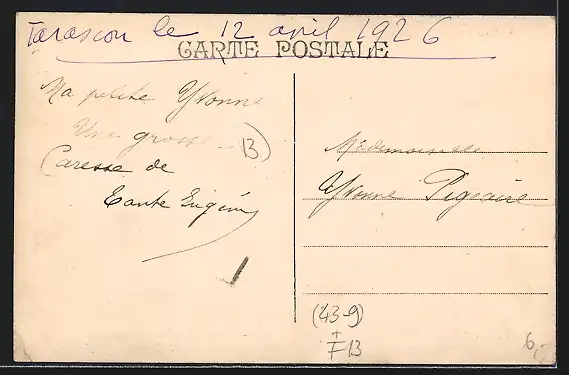 Tarascon le 12 avril 1926
CARTE POSTALE
Ma petite Yvonne
Une grosse
Caresse de
Tante Eugénie
B
Mademoiselle
Yvonne Pigeaire
(43-9)
+
F13
6,